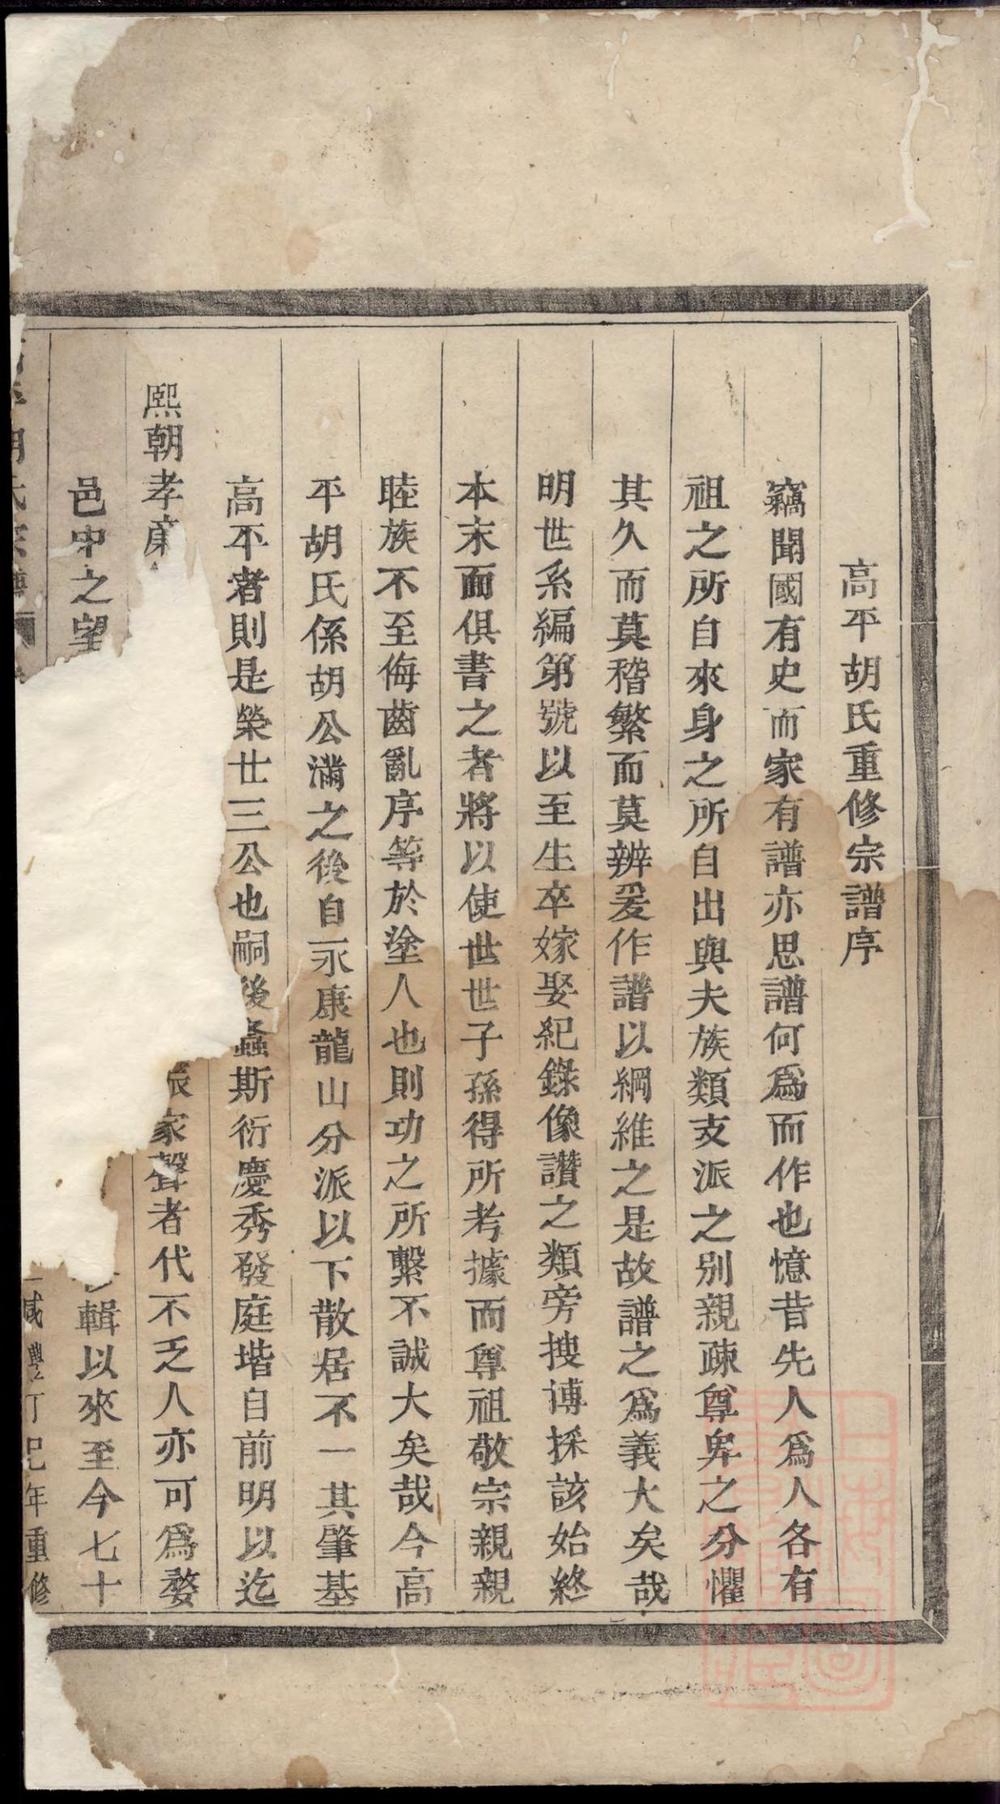 高平胡氏重修宗譜序
竊聞國有史而家有譜亦思譜何爲而作也憶昔先人爲人各有
祖之所自來身之所自出與夫族類支派之別親疎尊卑之分懼
其久而莫稽繁而莫辨爰作譜以綱維之是故譜之爲義大矣哉
明世系編第號以至生卒嫁娶紀錄像讚之類旁搜博採該始終
本末而俱書之者將以使世世子孫得所考據而尊祖敬宗親親
睦族不至侮齒亂序等於塗人也則功之所繫不誠大矣哉今高
平胡氏係胡公滿之後自永康龍山分派以下散居不一其肇基
高平者則是榮廿三公也嗣後螽斯衍慶秀發庭堦自前明以迄
熙朝孝 振家聲者代不乏人亦可爲婺
邑中之望 輯以來至今七十
平胡氏宗譜 咸豐丁巳年重修